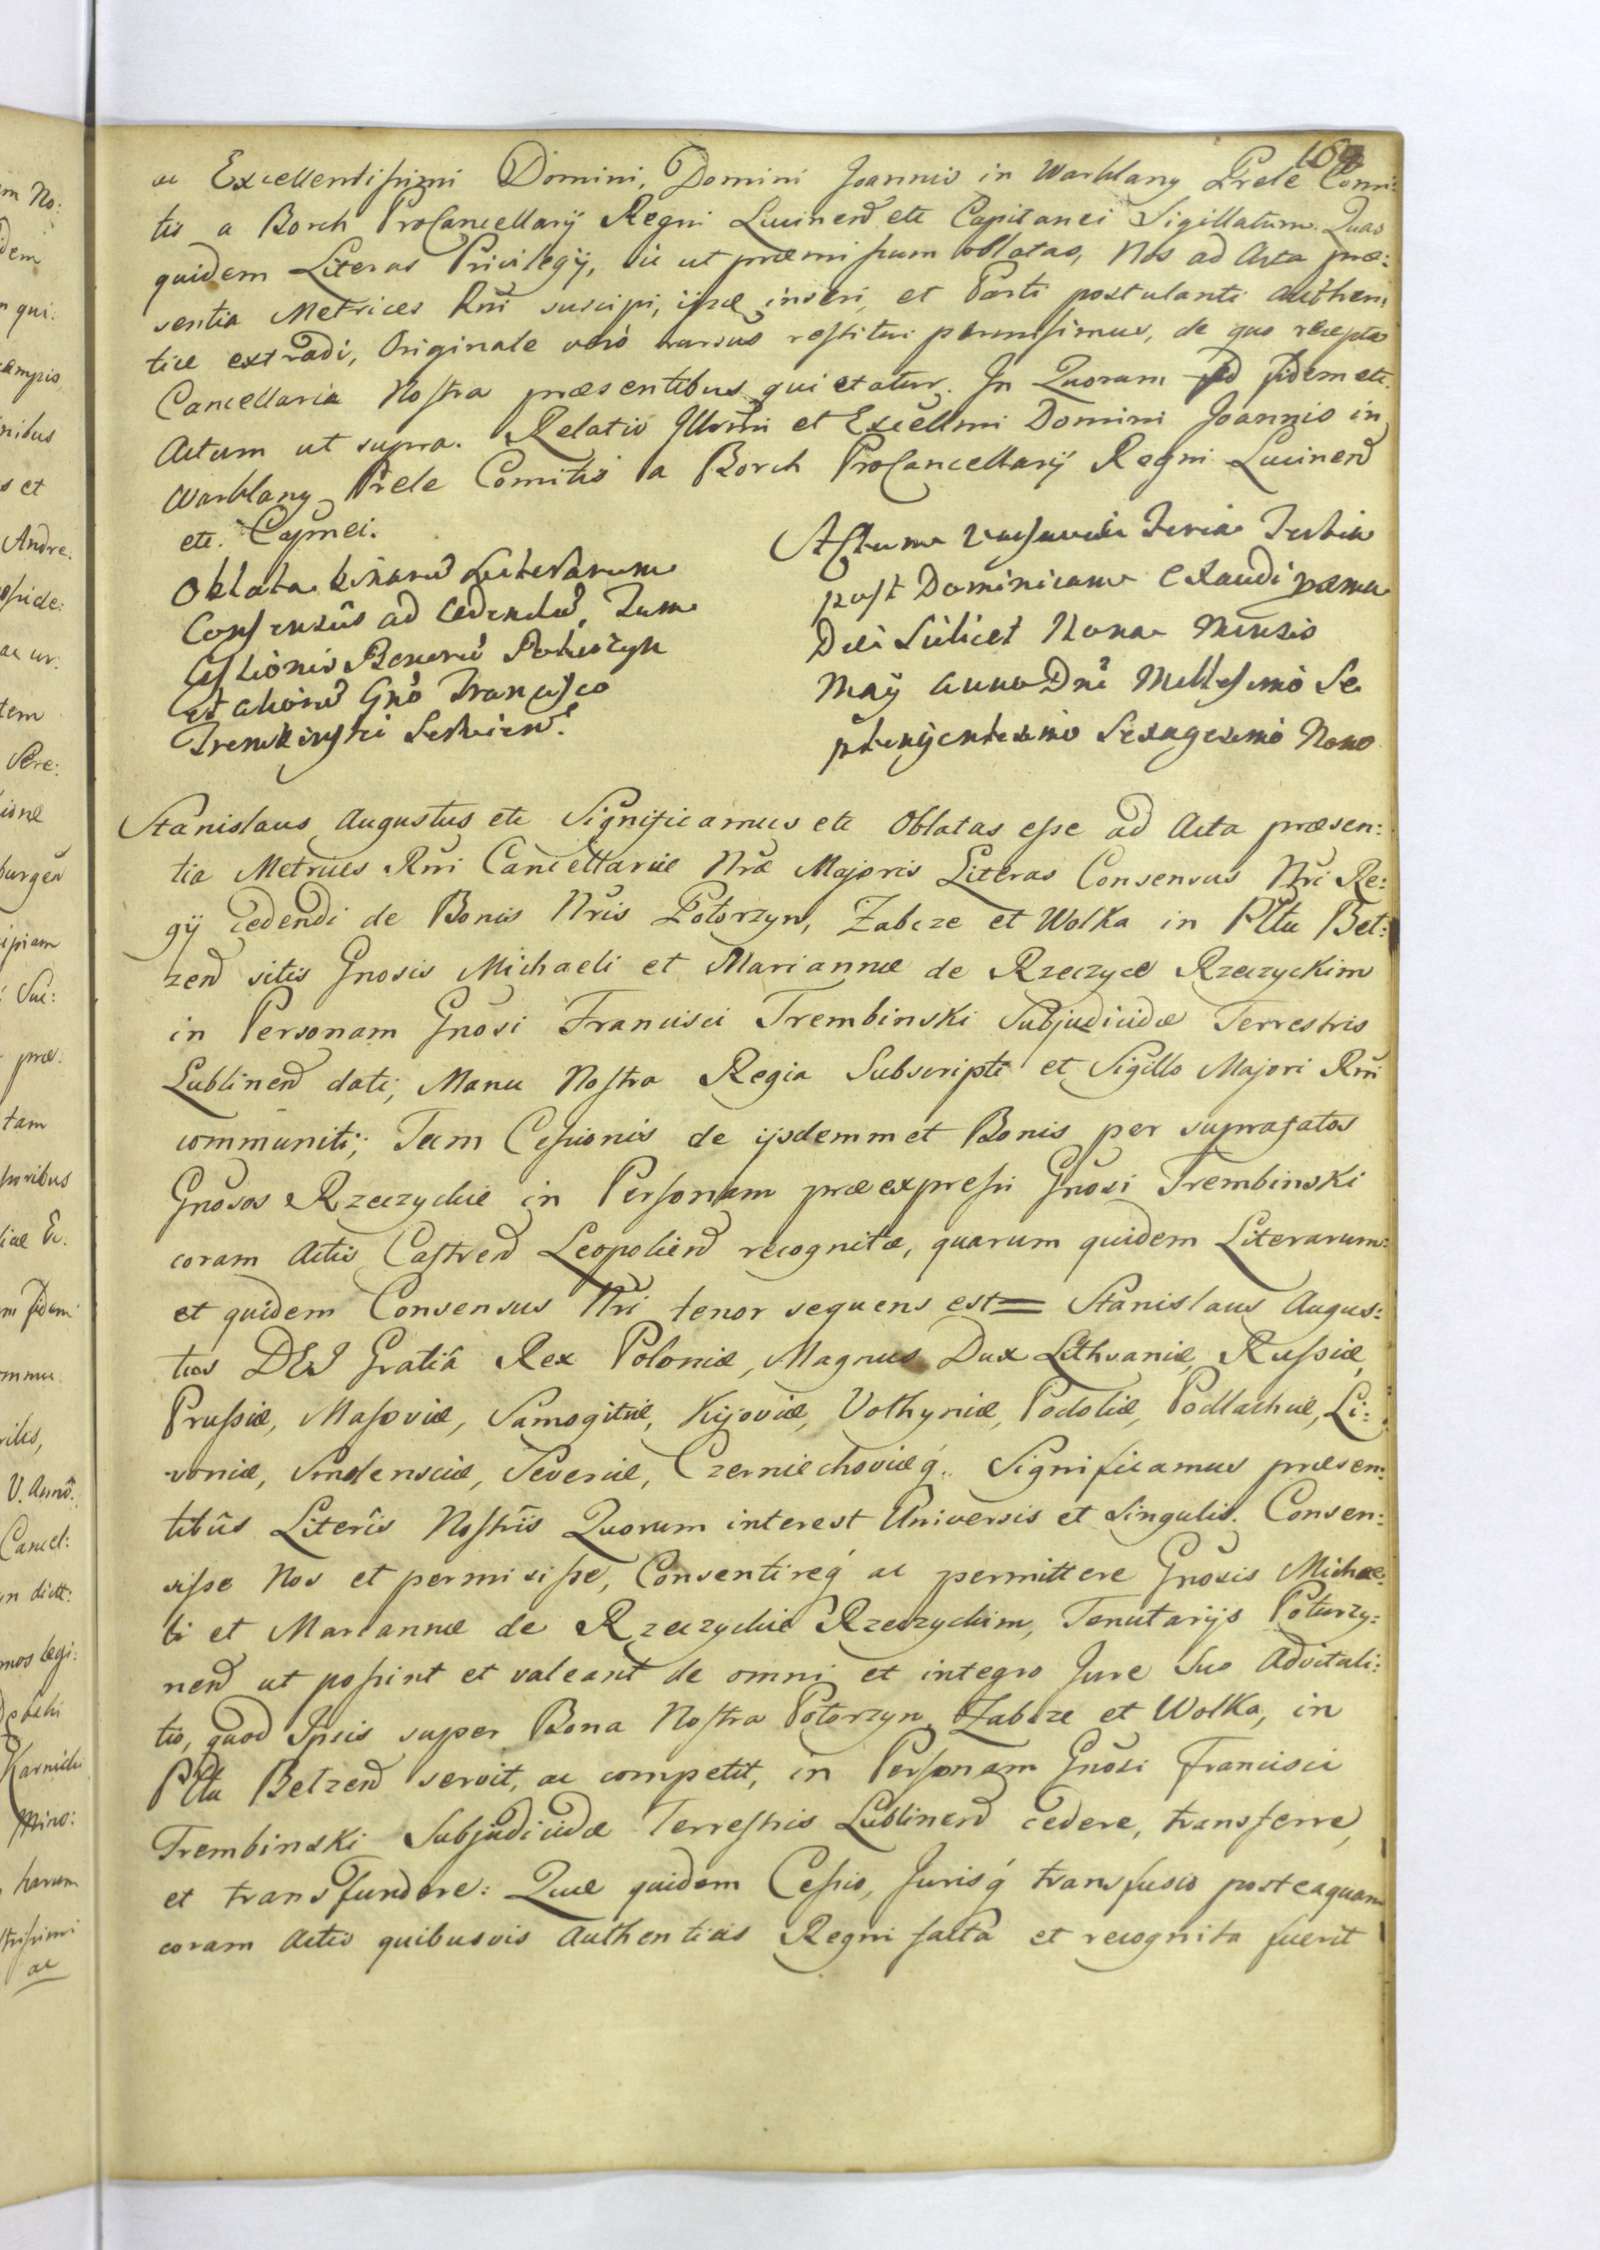 169
ac Excellentissimi Domini, Domini Joannis in Warklany Prele Comi:
tis a Borch ProCancellarij Regni Lucinen etc Capitanei Sigillatum. Quas
quidem Literas Privilegij, sic ut præmissum oblatas, Nos ad Acta præ:
sentia Metrices Rni suscipi, ijsq inseri, et Parti postulanti authen:
tice extradi, Originale verò rursus restitui permisimus, de quo recepto
Cancellaria Nostra præsentibus quietatur. In Quorum fidem etc.
Actum ut supra. Relatio Illmi et Excellmi Domini Joannis in
Warklany Prele Comitis a Borch ProCancellarij Regni Lucinen
etc. Capnei.
Oblata binarũ Literarum
Consensûs ad cedendũ, Tum
Cessionis Bonorũ Potorzyn
et aliorũ Gnõ Francisco
Trembinski Servien.
Actum Varsaviæ Feria Tertia
post Dominicam Exaudi pxma
Die Scilicet Nona Mensis
Maij Anno Dni Millesimo Se
ptingentesimo Sexagesimo Nono
Stanislaus Augustus etc Significamus etc Oblatas esse ad Acta præsen:
tia Metrices Rni Cancellariæ Nræ Majoris Literas Consensus Nri Re:
gij cedendi de Bonis Nris Potorzyn, Zabcze et Wolka in Plttu Bel:
zen sitis Gnosis Michaeli et Mariannæ de Rzeczyce Rzeczyckim
in Personam Gnosi Francisci Trembinski Subjudicidæ Terrestris
Lublinen dati, Manu Nostra Regia Subscripti et Sigillo Majori Rni
communiti; Tum Cessionis de ijsdemmet Bonis per suprafatos
Gnosos Rzeczyckie in Personam præexpressi Gnosi Trembinski
coram Actis Castren Leopolien recognitæ, quarum quidem Literarum:
et quidem Consensus Nri tenor sequens est= Stanislaus Augus:
tus DEI Gratiâ Rex Poloniæ, Magnus Dux Lithvaniæ, Russiæ,
Prussiæ, Masoviæ, Samogitiæ, Kijoviæ, Volhyniæ, Podoliæ, Podlachiæ, Li:
voniæ, Smolensciæ, Severiæ, Czerniechoviæq́. Significamus præsen:
tibûs Literîs Nostrîs Quorum interest Universis et Singulis. Consen:
sisse Nos et permisisse, Consentireq́ ac permittere Gnosis Michae:
li et Mariannæ de Rzeczyckie Rzeczyckim, Tenutarijs Poturzy:
nen ut possint et valeant de omni et integro Jure Suo Advitali:
tio, quod Ipsis super Bona Nostra Potorzyn, Zabcze et Wolka, in
Plttu Belzen servit, ac competit, in Personam Gnosi Francisci
Trembinski Subjudicidæ Terrestris Lublinen cedere, transferre,
et transfundere: Quæ quidem Cessio, Jurisq́ transfusio posteaquam
coram Actis quibusvis Authenticis Regni facta et recognita fuerit